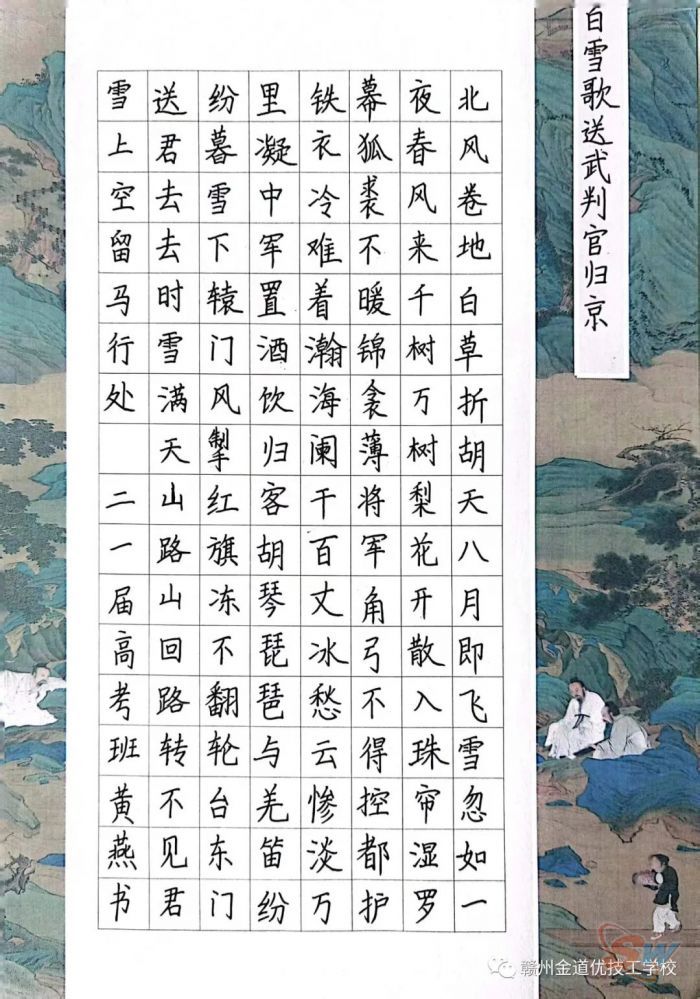 白雪歌送武判官归京
北风卷地白草折胡天八月即飞雪忽如一
夜春风来千树万树梨花开散入珠帘湿罗
幕狐裘不暖锦衾薄将军角弓不得控都护
铁衣冷难着瀚海阑干百丈冰愁云惨淡万
里凝中军置酒饮归客胡琴琵琶与羌笛纷
纷暮雪下辕门风掣红旗冻不翻轮台东门
送君去去时雪满天山路山回路转不见君
雪上空留马行处 二一届高考班黄燕书
赣州金道优技工学校